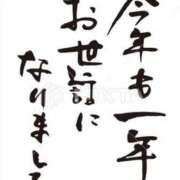 今年も一年
お世話に
なりまして